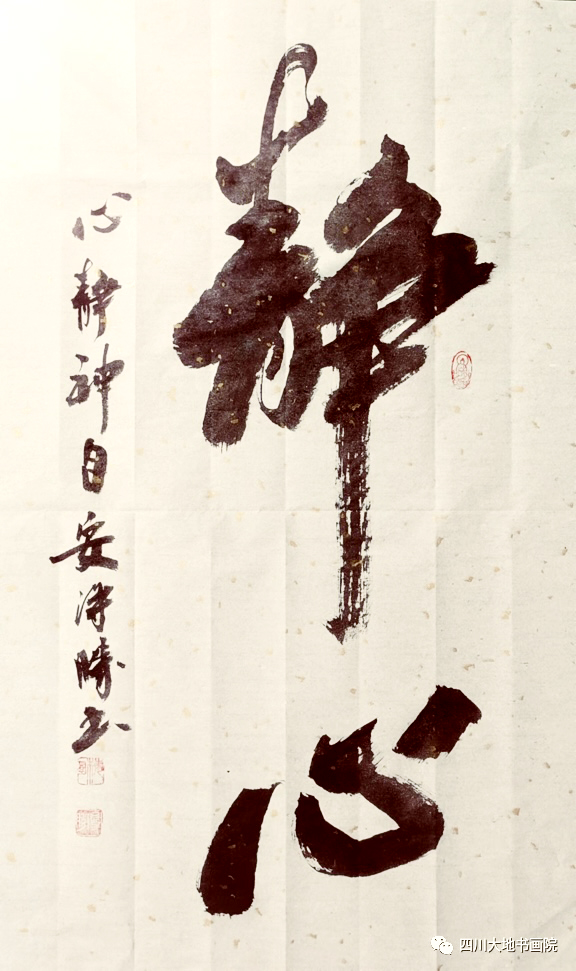 静心
心静神自安 泽晴书
四川大地书画院